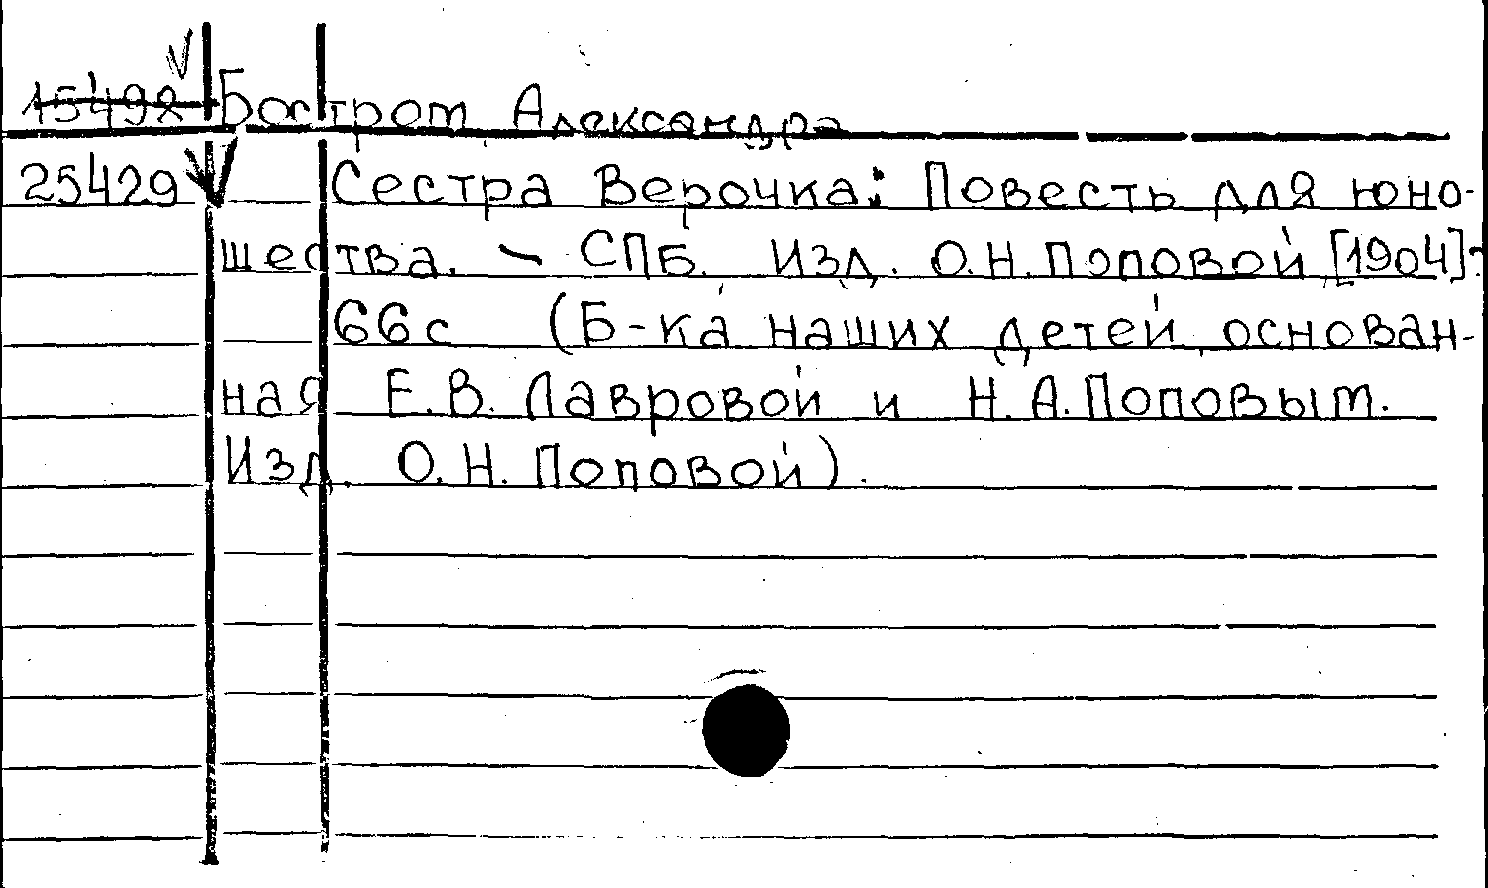 15498 Бостром Александра
25429 Сестра Верочка: Повесть для юно-
шества. – СПБ. Изд. О.Н.Поповой [1904]?
66с (Б-ка наших детей основан-
ная Е.В. Лавровой и Н.А.Поповым.
Изд. О.Н. Поповой).